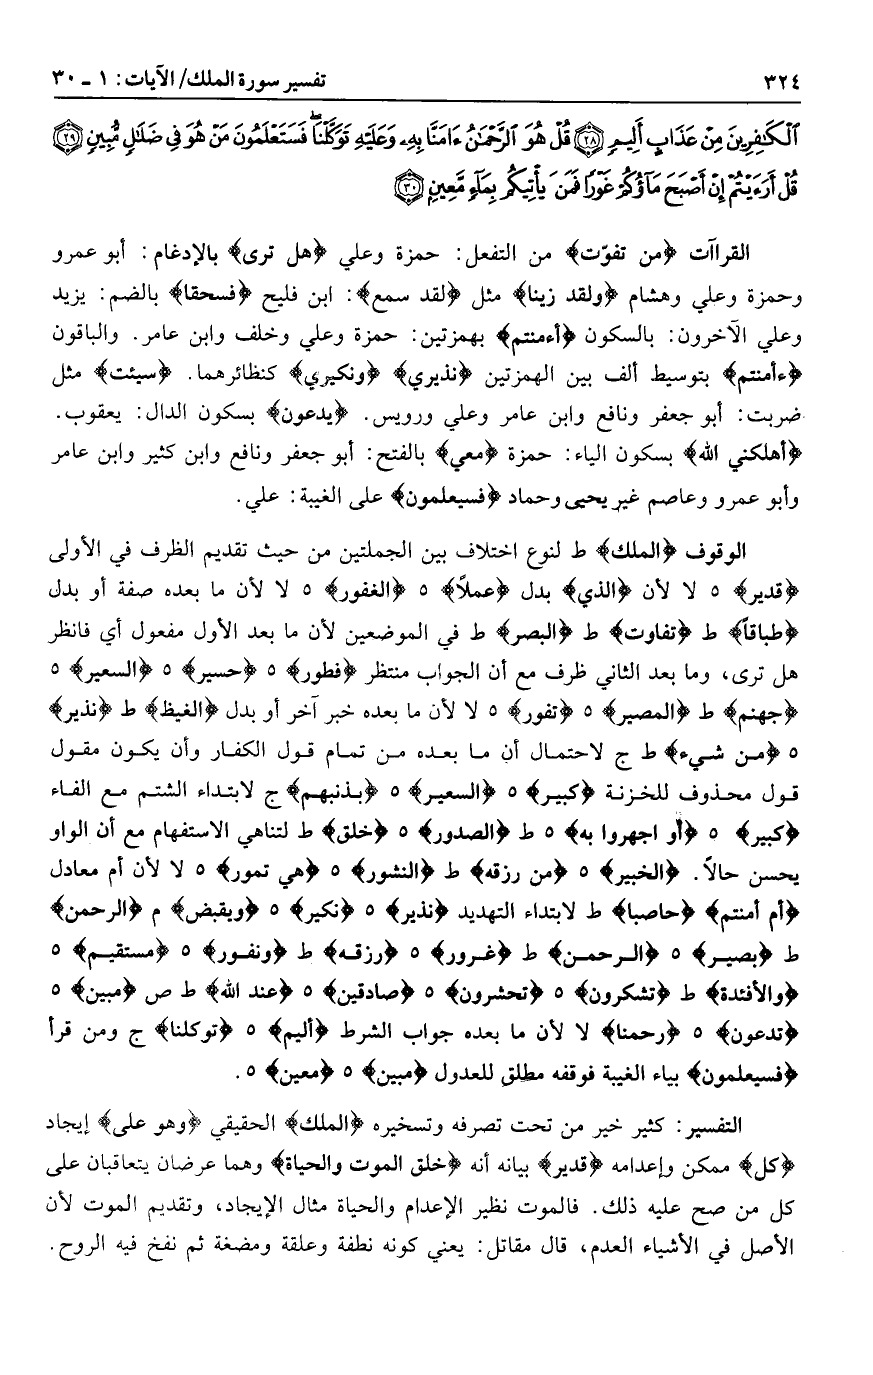 ٣٢٤ تفسير سورة الملك/ الآيات: ١ ـ ٣٠
ٱلْكَٰفِرِينَ مِنْ عَذَابٍ أَلِيمٍ ﴿٢٨﴾ قُلْ هُوَ ٱلرَّحْمَٰنُ ءَامَنَّا بِهِۦ وَعَلَيْهِ تَوَكَّلْنَا ۖ فَسَتَعْلَمُونَ مَنْ هُوَ فِى ضَلَٰلٍ مُّبِينٍ ﴿٢٩﴾
قُلْ أَرَءَيْتُمْ إِنْ أَصْبَحَ مَآؤُكُمْ غَوْرًا فَمَن يَأْتِيكُم بِمَآءٍ مَّعِينٍۭ ﴿٣٠﴾
القراآت ﴿من تفوّت﴾ من التفعل: حمزة وعلي ﴿هل ترى﴾ بالإدغام: أبو عمرو
وحمزة وعلي وهشام ﴿ولقد زينا﴾ مثل ﴿لقد سمع﴾: ابن فليح ﴿فسحقا﴾ بالضم: يزيد
وعلي الآخرون: بالسكون ﴿أءمنتم﴾ بهمزتين: حمزة وعلي وخلف وابن عامر. والباقون
﴿ءأمنتم﴾ بتوسيط ألف بين الهمزتين ﴿نذيري﴾ ﴿ونكيري﴾ كنظائرهما. ﴿سيئت﴾ مثل
ضربت: أبو جعفر ونافع وابن عامر وعلي ورويس. ﴿يدعون﴾ بسكون الدال: يعقوب.
﴿أهلكني الله﴾ بسكون الياء: حمزة ﴿معي﴾ بالفتح: أبو جعفر ونافع وابن كثير وابن عامر
وأبو عمرو وعاصم غير يحيى وحماد ﴿فسيعلمون﴾ على الغيبة: علي.
الوقوف ﴿الملك﴾ ط لنوع اختلاف بين الجملتين من حيث تقديم الظرف في الأولى
﴿قدير﴾ ٥ لا لأن ﴿الذي﴾ بدل ﴿عملاً﴾ ٥ ﴿الغفور﴾ ٥ لا لأن ما بعده صفة أو بدل
﴿طباقاً﴾ ط ﴿تفاوت﴾ ط ﴿البصر﴾ ط في الموضعين لأن ما بعد الأول مفعول أي فانظر
هل ترى، وما بعد الثاني ظرف مع أن الجواب منتظر ﴿فطور﴾ ٥ ﴿حسير﴾ ٥ ﴿السعير﴾ ٥
﴿جهنم﴾ ط ﴿المصير﴾ ٥ ﴿تفور﴾ ٥ لا لأن ما بعده خبر آخر أو بدل ﴿الغيظ﴾ ط ﴿نذير﴾
٥ ﴿من شيء﴾ ط ج لاحتمال أن ما بعده من تمام قول الكفار وأن يكون مقول
قول محذوف للخزنة ﴿كبير﴾ ٥ ﴿السعير﴾ ٥ ﴿بذنبهم﴾ ج لابتداء الشتم مع الفاء
﴿كبير﴾ ٥ ﴿أو اجهروا به﴾ ٥ ط ﴿الصدور﴾ ٥ ﴿خلق﴾ ط لتناهي الاستفهام مع أن الواو
يحسن حالاً. ﴿الخبير﴾ ٥ ﴿من رزقه﴾ ط ﴿النشور﴾ ٥ ﴿هي تمور﴾ ٥ لا لأن أم معادل
﴿أم أمنتم﴾ ﴿حاصبا﴾ ط لابتداء التهديد ﴿نذير﴾ ٥ ﴿نكير﴾ ٥ ﴿ويقبض﴾ م ﴿الرحمن﴾
ط ﴿بصير﴾ ٥ ﴿الرحمن﴾ ط ﴿غرور﴾ ٥ ﴿رزقه﴾ ط ﴿ونفور﴾ ٥ ﴿مستقيم﴾ ٥
﴿والأفئدة﴾ ط ﴿تشكرون﴾ ٥ ﴿تحشرون﴾ ٥ ﴿صادقين﴾ ٥ ﴿عند الله﴾ ط ص ﴿مبين﴾ ٥
﴿تدعون﴾ ٥ ﴿رحمنا﴾ لا لأن ما بعده جواب الشرط ﴿أليم﴾ ٥ ﴿توكلنا﴾ ج ومن قرأ
﴿فسيعلمون﴾ بياء الغيبة فوقفه مطلق للعدول ﴿مبين﴾ ٥ ﴿معين﴾ ٥.
التفسير: كثير خير من تحت تصرفه وتسخيره ﴿الملك﴾ الحقيقي ﴿وهو على﴾ إيجاد
﴿كل﴾ ممكن وإعدامه ﴿قدير﴾ بيانه أنه ﴿خلق الموت والحياة﴾ وهما عرضان يتعاقبان على
كل من صح عليه ذلك. فالموت نظير الإعدام والحياة مثال الإيجاد، وتقديم الموت لأن
الأصل في الأشياء العدم، قال مقاتل: يعني كونه نطفة وعلقة ومضغة ثم نفخ فيه الروح.